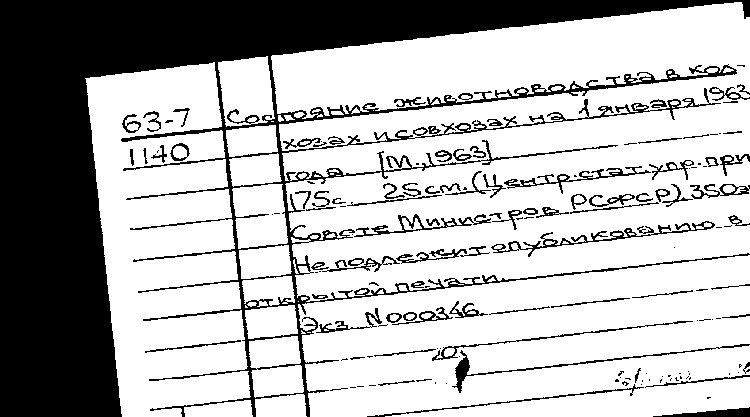 63-7 Состояние животноводства в кол-
1140 хозах и совхозах на 1 января 1963
года. [М., 1963]
175с. 25см. (Центр.стат.упр.при
Совете Министров РСФСР). 350э
Не подлежит опубликованию в
открытой печати.
Экз. N000346